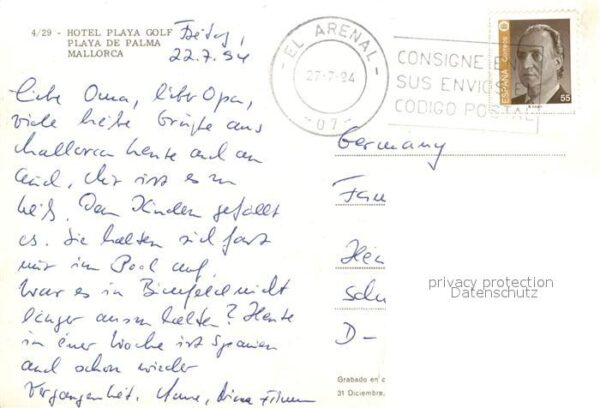 4/29 - HOTEL PLAYA GOLF
PLAYA DE PALMA
MALLORCA
Freitag,
22.7.94
Liebe Oma, lieber Opa,
viele heiße Grüße aus
Mallorca heute auch an
Euch. Mir ist es zu
heiß. Den Kindern gefällt
es. Sie halten sich fast
nur im Pool auf.
War es in nicht
länger auszuhalten? Heute
in einer Woche ist Spanien
auch schon wieder
Vergangenheit.
EL ARENAL
27-7-94
-07-
CONSIGNE EN
SUS ENVIOS
CODIGO POSTAL
ESPAÑA
correos
55
Germany
Fam
D-
privacy protection
Datenschutz
Grabado en
31 Diciembre,